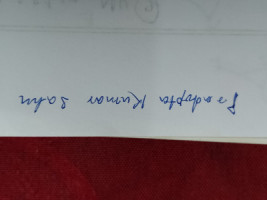 Pradypta Kumar Sahu